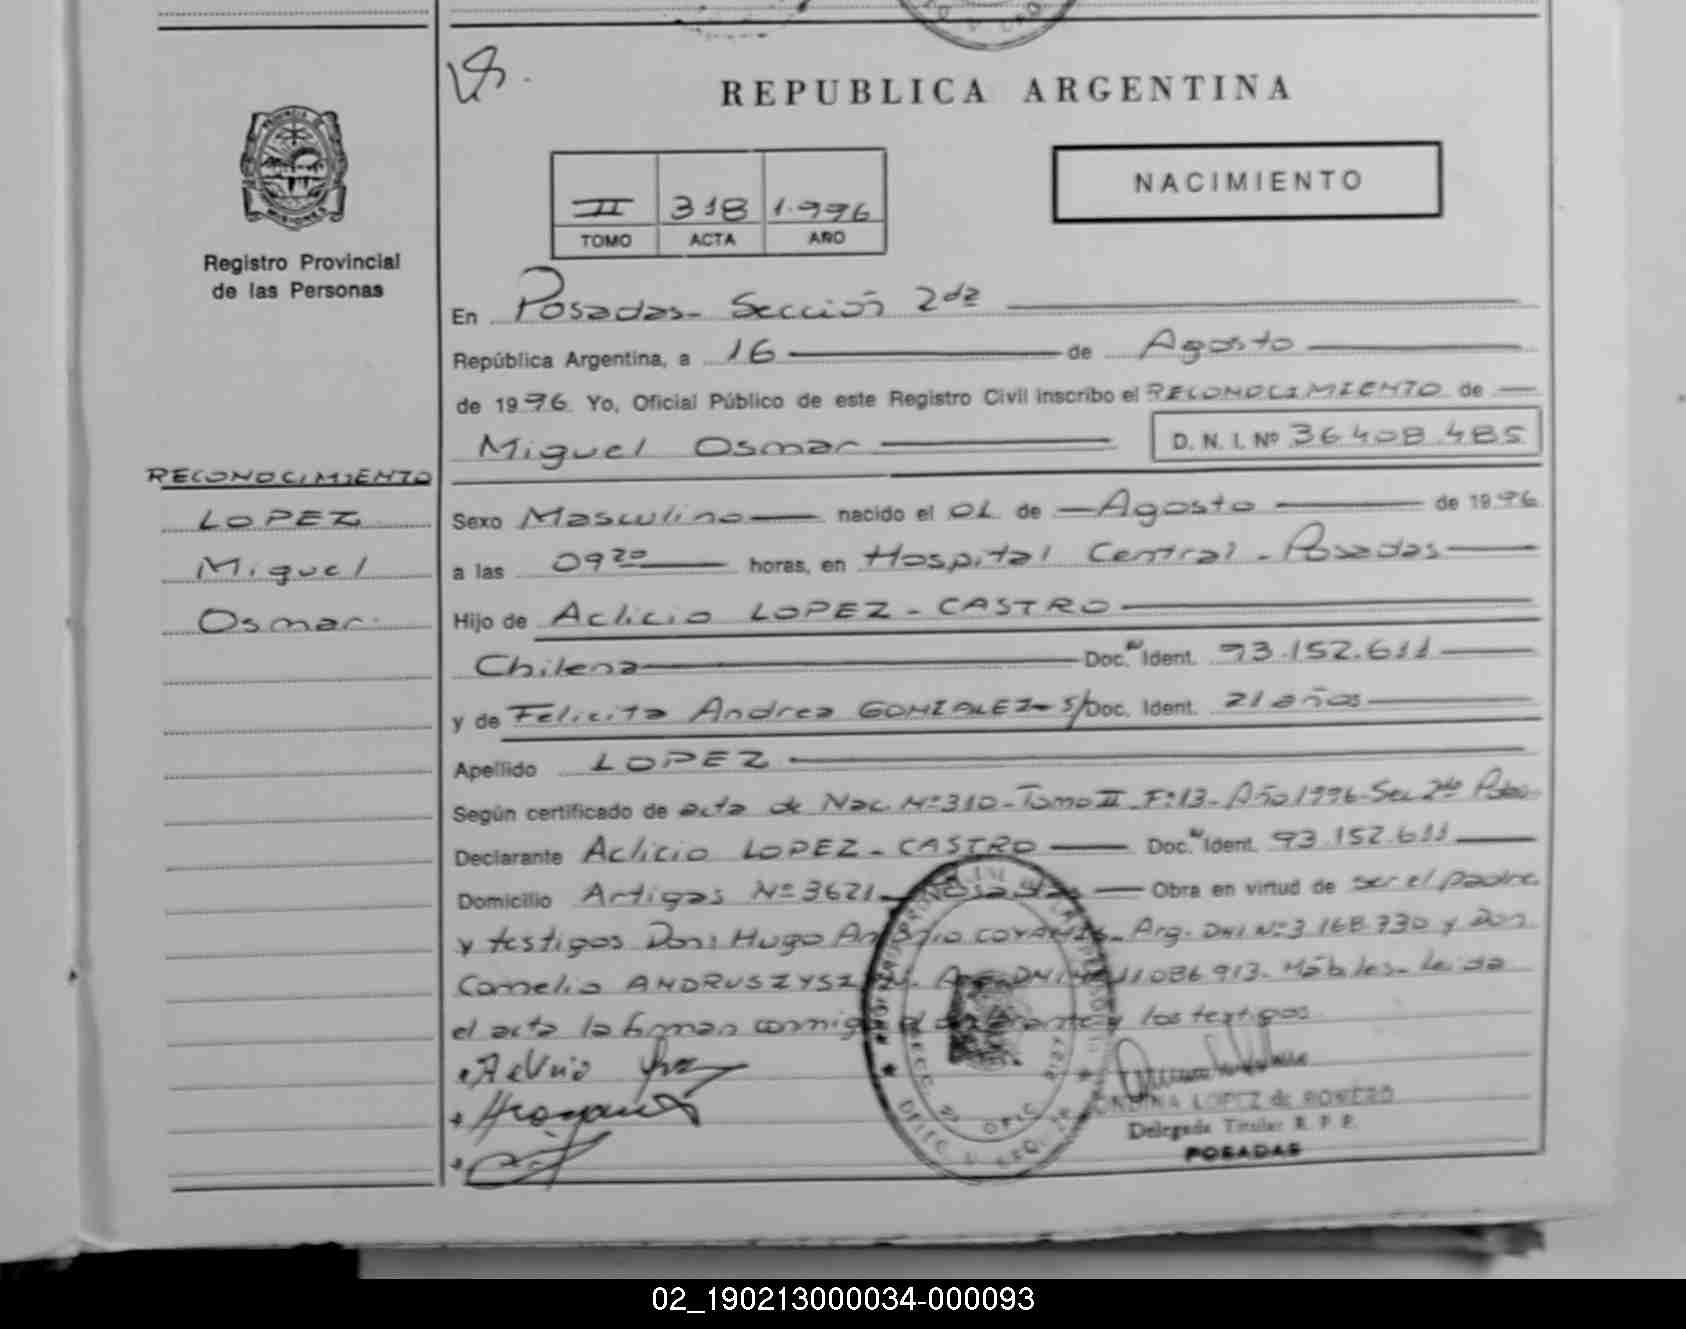 REPUBLICA ARGENTINA
NACIMIENTO
II 318 1.996
TOMO ACTA AÑO
Registro Provincial
de las Personas
En Posadas- Sección 2da
República Argentina, a 16 de Agosto
de 1996 Yo, Oficial Público de este Registro Civil inscribo el RECONOCIMIENTO de
Miguel Osmar D. N. I. Nº 36.408.485
RECONOCIMIENTO
LOPEZ
Miguel
Osmar
Sexo Masculino nacido el 01 de Agosto de 1996
a las 09 20 horas, en Hospital Central - Posadas
Hijo de Aclicio LOPEZ - CASTRO
Chilena Doc. Ident. 93.152.611
y de Felicita Andrea GONZALEZ- s/Doc. Ident. 21 años
Apellido LOPEZ
Según certificado de acta de Nac. Nº310-Tomo II-Fº:13-Año 1996-Sec 2da
Declarante Aclicio LOPEZ - CASTRO Doc. Ident. 93.152.611
Domicilio Artigas Nº 3621- Posadas Obra en virtud de ser el padre
y testigos Don: Hugo Arg. DNI Nº 3 168.730 y Don
Cornelio Arg. DNI Nº 11086.913- Hábiles- Leida
el acta la firman conmigo el declarante y los testigos
ONDINA LOPEZ de ROMERO
Delegada Titular R. P. P.
POSADAS
02_190213000034-000093